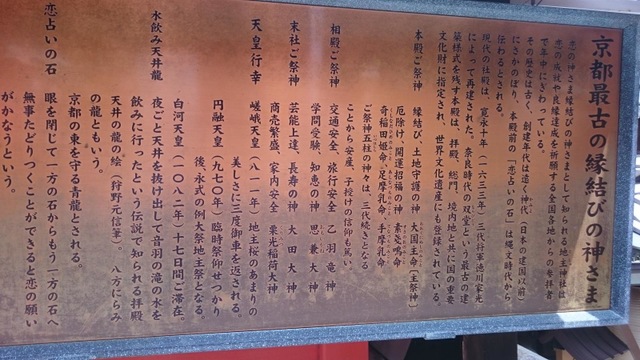 京都最古の縁結びの神さま
恋の神さま縁結びの神さまとして知られる地主神社は
恋の成就や良縁達成を祈願する全国各地からの参拝者
で年中にぎわっている。
その歴史は古く、創建年代は遠く神代（日本の建国以前）
にさかのぼり、本殿前の「恋占いの石」は縄文時代から
伝わるとされる。
現代の社殿は、寛永十年（一六三三年）三代将軍徳川家光
によって再建された。奈良時代の双堂という最古の建
築様式を残す本殿は、拝殿、総門、境内地と共に国の重要
文化財に指定され、世界文化遺産にも登録されている。
本殿ご祭神　縁結び、土地守護の神　大国主命（主祭神）
厄除け、開運招福の神　素戔嗚命
奇稲田姫命・足摩乳命・手摩乳命
ご祭神五柱の神々は、三代続きとなる
ことから安産、子授けの信仰も篤い。
相殿ご祭神　交通安全、旅行安全　乙羽竜神
学問受験、知恵の神　思兼大神
末社ご祭神　芸能上達、長寿の神　大田大神
商売繁盛、家内安全　栗光稲荷大神
天皇行幸　嵯峨天皇（八一一年）地主桜のあまりの
美しさに三度御車を返される。
円融天皇（九七〇年）臨時祭仰せつかり
後、永式の例大祭地主祭となる。
白河天皇（一〇八二年）十七日間ご滞在。
水飲み天井龍　夜ごと天井を抜け出して音羽の滝の水を
飲みに行ったという伝説で知られる拝殿
天井の龍の絵（狩野元信筆）。八方にらみ
の龍という。
京都の東を守る青龍とされる。
恋占いの石　眼を閉じて一方の石からもう一方の石へ
無事たどりつくことができると恋の願い
がかなうという。